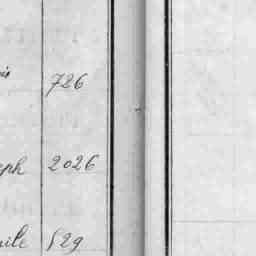 is 726
eph 2026
mile 529